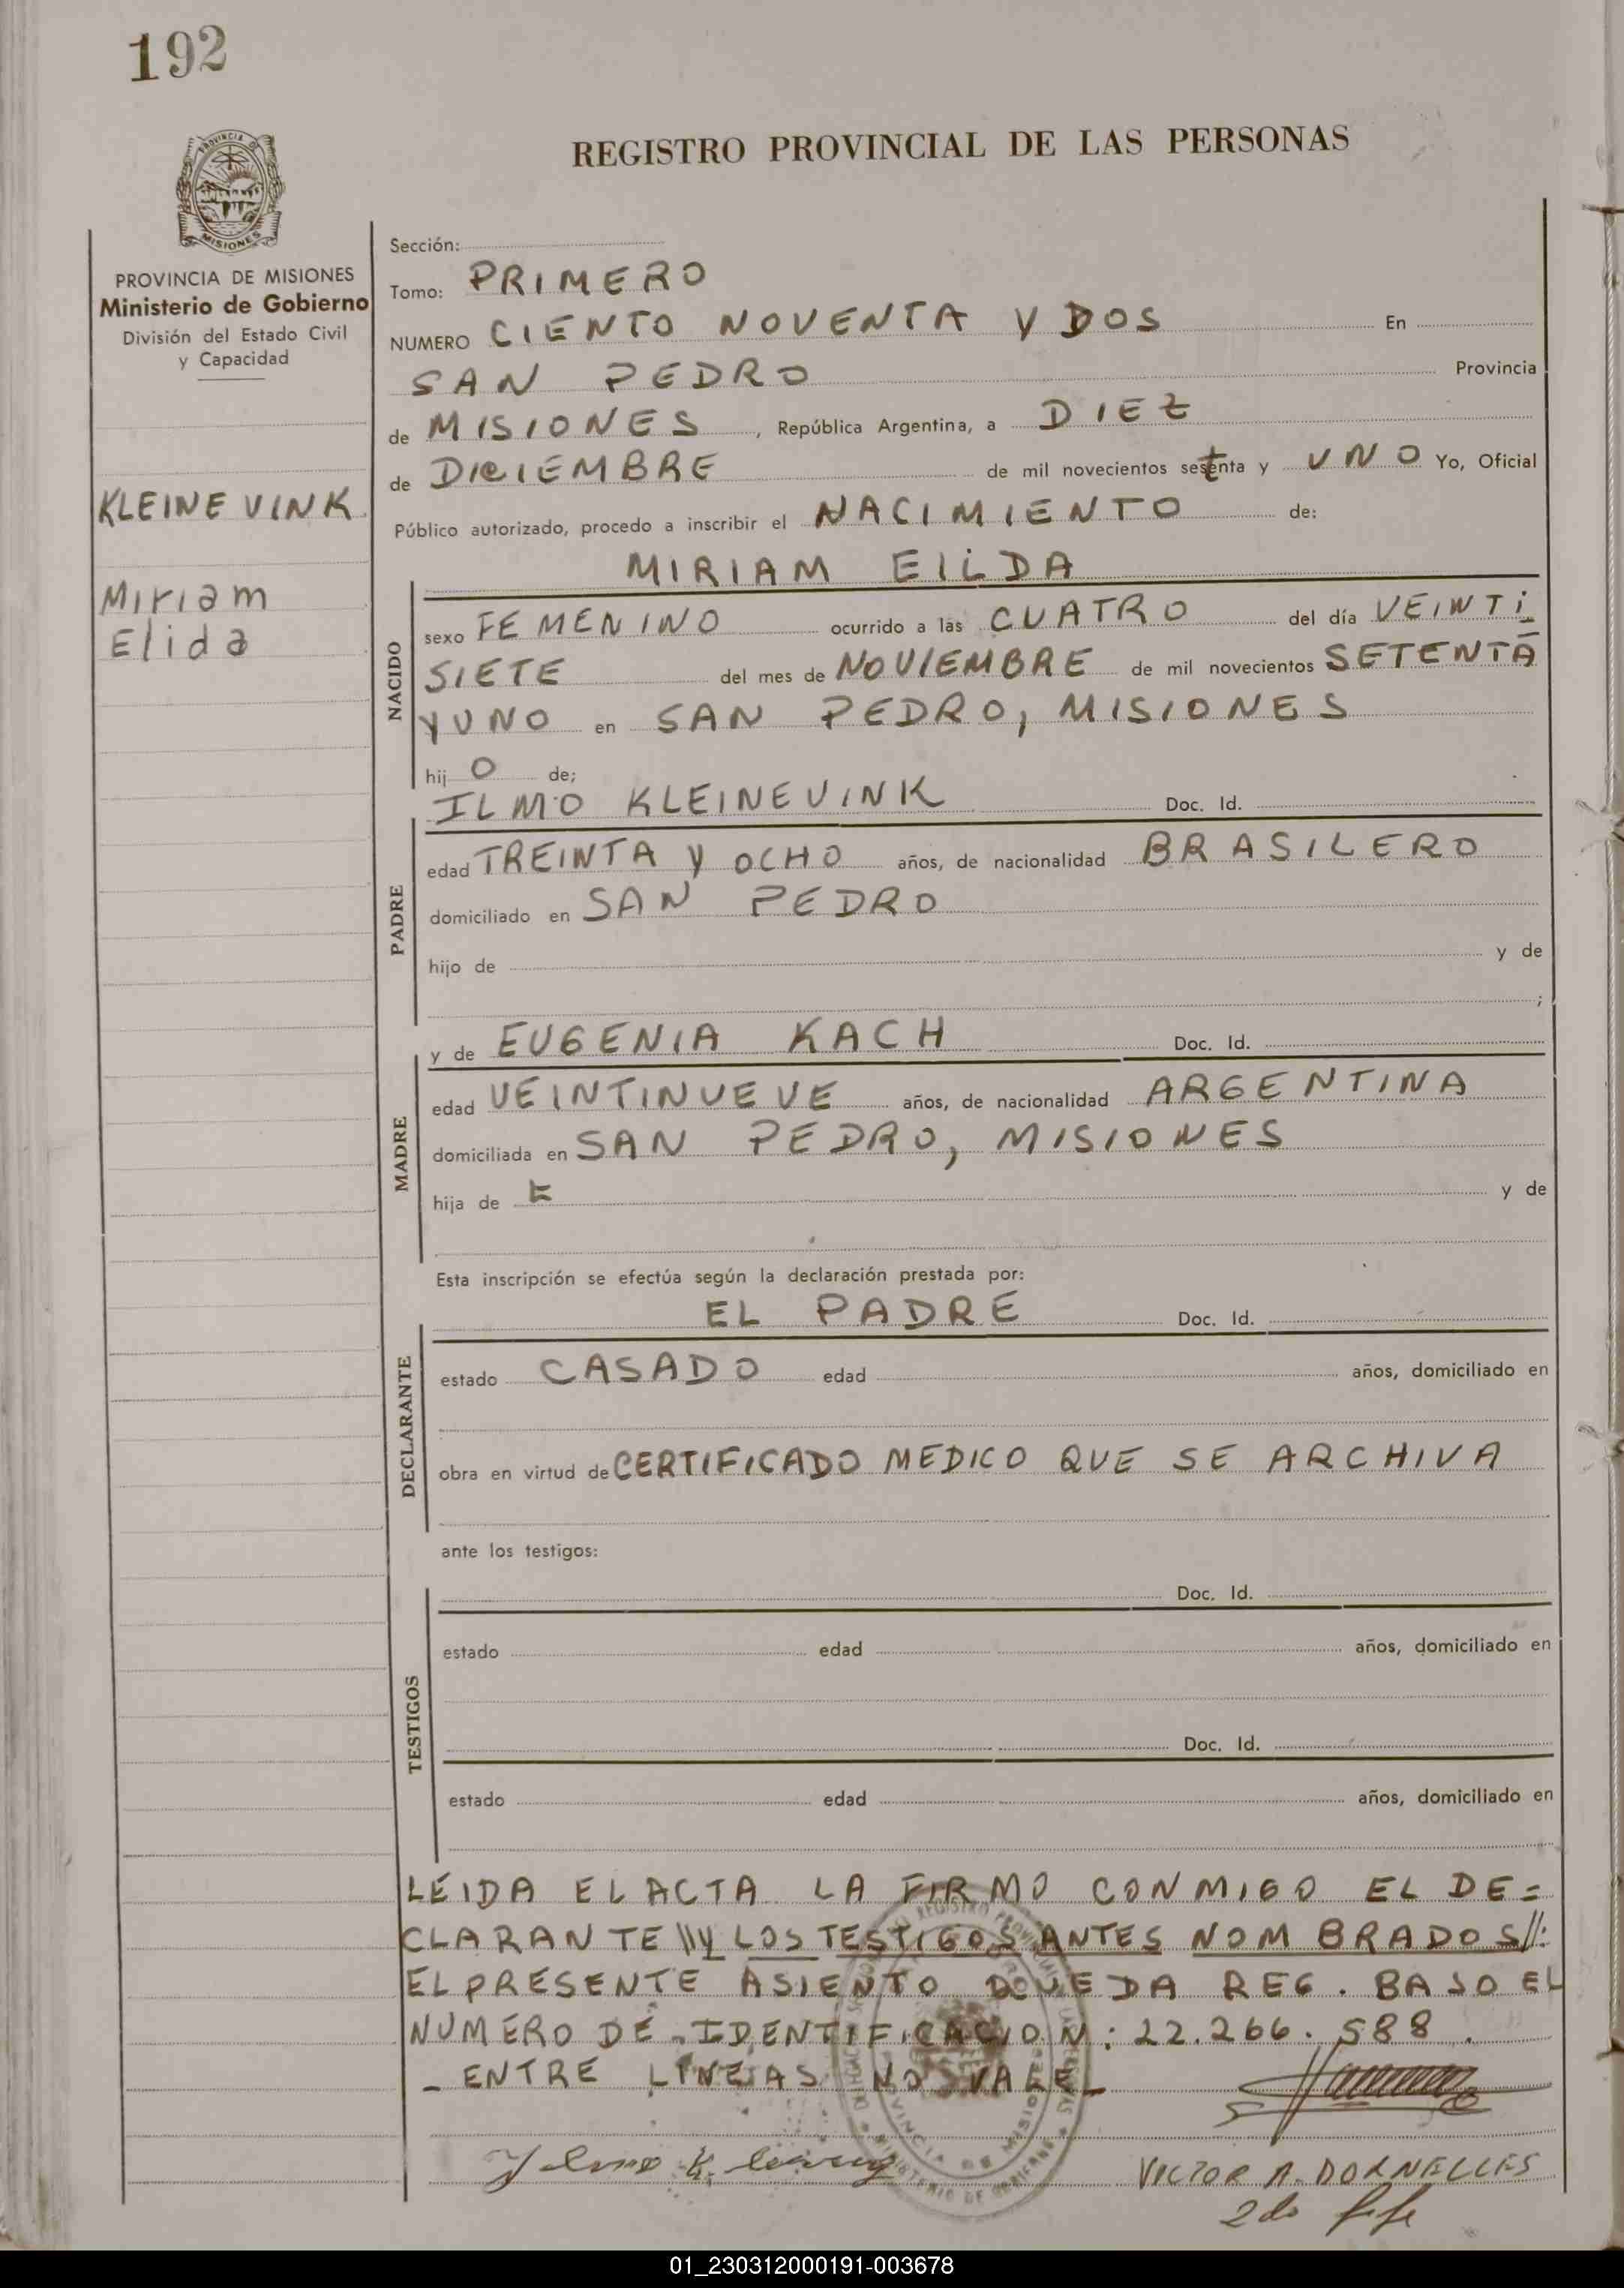 192
REGISTRO PROVINCIAL DE LAS PERSONAS
PROVINCIA DE MISIONES
Ministerio de Gobierno
División del Estado Civil
y Capacidad
KLEINE VINK
Miriam
Elida
Sección:
Tomo: PRIMERO
NUMERO CIENTO NOVENTA Y DOS En
SAN PEDRO Provincia
de MISIONES, República Argentina, a DIEZ
de DICIEMBRE de mil novecientos setenta y UNO Yo, Oficial
Público autorizado, procedo a inscribir el NACIMIENTO de:
MIRIAM ELIDA
NACIDO
sexo FEMENINO ocurrido a las CUATRO del día VEINTI
SIETE del mes de NOVIEMBRE de mil novecientos SETENTA
Y UNO en SAN PEDRO, MISIONES
hij O de;
ILMO KLEINEVINK Doc. Id.
PADRE
edad TREINTA Y OCHO años, de nacionalidad BRASILERO
domiciliado en SAN PEDRO
hijo de y de
;
y de EUGENIA KACH Doc. Id.
MADRE
edad VEINTINUEVE años, de nacionalidad ARGENTINA
domiciliada en SAN PEDRO, MISIONES
hija de y de
Esta inscripción se efectúa según la declaración prestada por:
EL PADRE Doc. Id.
DECLARANTE
estado CASADO edad años, domiciliado en
obra en virtud de CERTIFICADO MEDICO QUE SE ARCHIVA
ante los testigos:
Doc. Id.
TESTIGOS
estado edad años, domiciliado en
Doc. Id.
estado edad años, domiciliado en
LEIDA EL ACTA LA FIRMO CONMIGO EL DE=
CLARANTE \\Y LOS TESTIGOS ANTES NOMBRADOS//:
EL PRESENTE ASIENTO QUEDA REG. BAJO EL
NUMERO DE IDENTIFICACION: 22.266.588.
- ENTRE LINEAS NO VALE -
VICTOR A. DORNELLES
2do Jefe
01_230312000191-003678